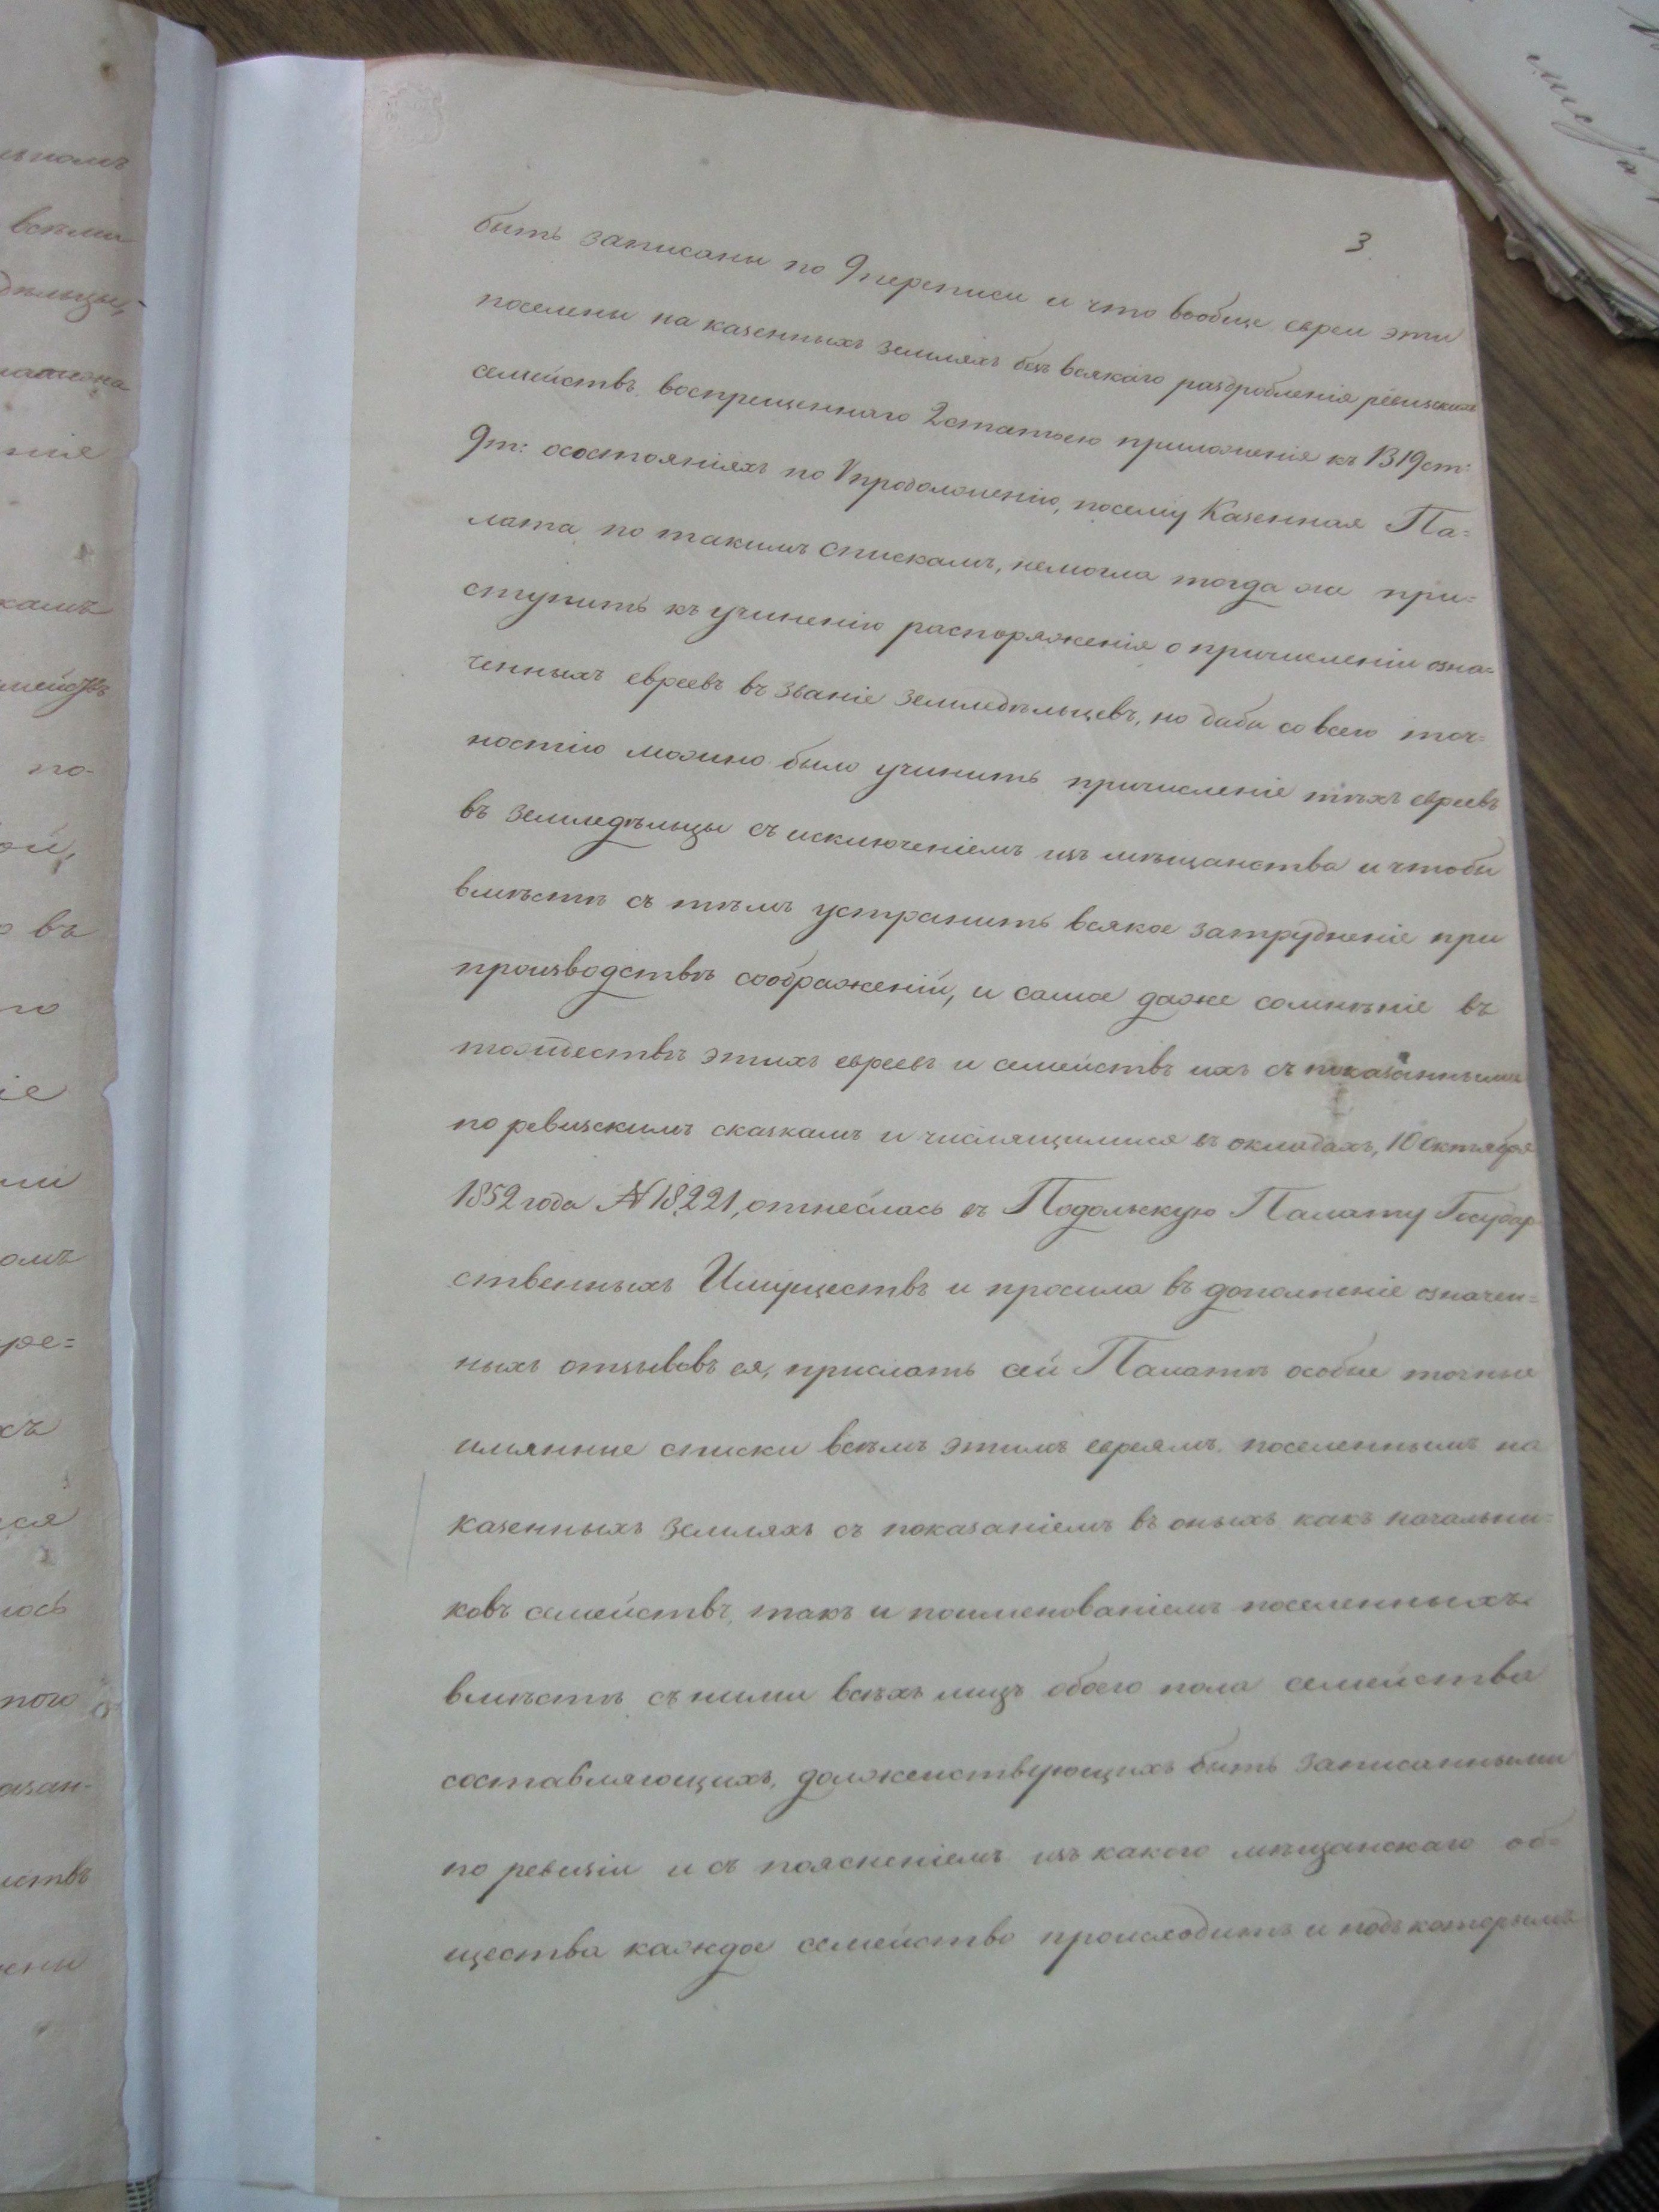 3
быть записаны по 9 переписи и что вообще евреи эти
поселены на казенныхъ земляхъ безъ всякаго раздробленія ревизскихъ
семействъ, воспрещеннаго 2 статьею приложенія къ 1319 ст:
9 т: о состояніяхъ по V продолженію, посему Казенная Па=
лата по такимъ спискамъ, немогла тогда же при=
ступить къ учиненію распоряженія о причисленіи озна=
ченныхъ евреевъ въ званіе земледѣльцевъ, но дабы со всею точ=
ностію можно было учинить причисленіе тѣхъ евреевъ
въ земледѣльцы съ исключеніемъ изъ мѣщанства и чтобы
вмѣстѣ съ тѣмъ устранить всякое затрудненіе при
производствѣ соображеній, и самое даже сомнѣніе въ
тождествѣ этихъ евреевъ и семействъ ихъ съ показанными
по ревизскимъ сказкамъ и числящимися въ окладахъ, 10 Октября
1852 года № 18,221, отнеслась въ Подольскую Палату Государ
ственныхъ Имуществъ и просила въ дополненіе означен=
ныхъ отзывовъ ея, прислать сей Палатѣ особые точные
имянные списки всѣмъ этимъ евреямъ, поселеннымъ на
казенныхъ земляхъ съ показаніемъ въ оныхъ какъ начальни=
ковъ семействъ, такъ и поименованіемъ поселенныхъ
вмѣстѣ съ ними всѣхъ лицъ обоего пола семейства
составляющихъ, долженствующихъ быть записанными
по ревизіи и съ поясненіемъ изъ какого мѣщанскаго об=
щества каждое семейство происходитъ и подъ которымъ